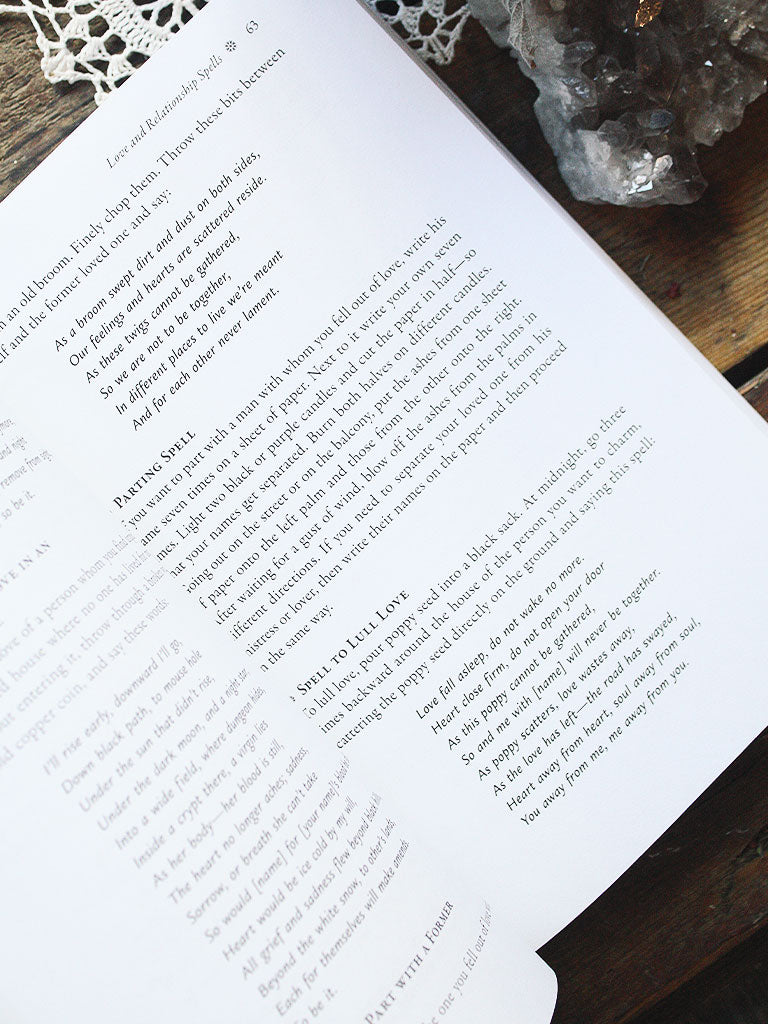 remove from
so be it.
OVE IN AN
ove of a person whom you
d house where no one has lived
ut entering it, throw through a
ld copper coin, and say these words:
I'll rise early, downward I'll go,
Down black path, to mouse hole
Under the sun that didn't rise,
Under the dark moon, and a night star.
Into a wide field, where dungeon hides,
Inside a crypt there, a virgin lies
As her body—her blood is still,
The heart no longer aches; sadness,
Sorrow, or breath she can't take
So would [name] for [your name]'s
Heart would be ice cold by my will,
All grief and sadness flew beyond black hill
Beyond the white snow, to other's lands,
Each for themselves will make amends.
So be it.
PART WITH A FORMER
e one you fell out of love
Love and Relationship Spells ❋ 63
n an old broom. Finely chop them. Throw these bits between
elf and the former loved one and say:
As a broom swept dirt and dust on both sides,
Our feelings and hearts are scattered reside.
As these twigs cannot be gathered,
So we are not to be together,
In different places to live we're meant
And for each other never lament.
PARTING SPELL
f you want to part with a man with whom you fell out of love, write his
ame seven times on a sheet of paper. Next to it write your own seven
mes. Light two black or purple candles and cut the paper in half—so
hat your names get separated. Burn both halves on different candles.
oing out on the street or on the balcony, put the ashes from one sheet
f paper onto the left palm and those from the other onto the right.
fter waiting for a gust of wind, blow off the ashes from the palms in
ifferent directions. If you need to separate your loved one from his
istress or lover, then write their names on the paper and then proceed
n the same way.
SPELL TO LULL LOVE
To lull love, pour poppy seed into a black sack. At midnight, go three
imes backward around the house of the person you want to charm,
cattering the poppy seed directly on the ground and saying this spell:
Love fall asleep, do not wake no more.
Heart close firm, do not open your door
As this poppy cannot be gathered,
So and me with [name] will never be together.
As poppy scatters, love wastes away,
As the love has left—the road has swayed,
Heart away from heart, soul away from soul,
You away from me, me away from you.